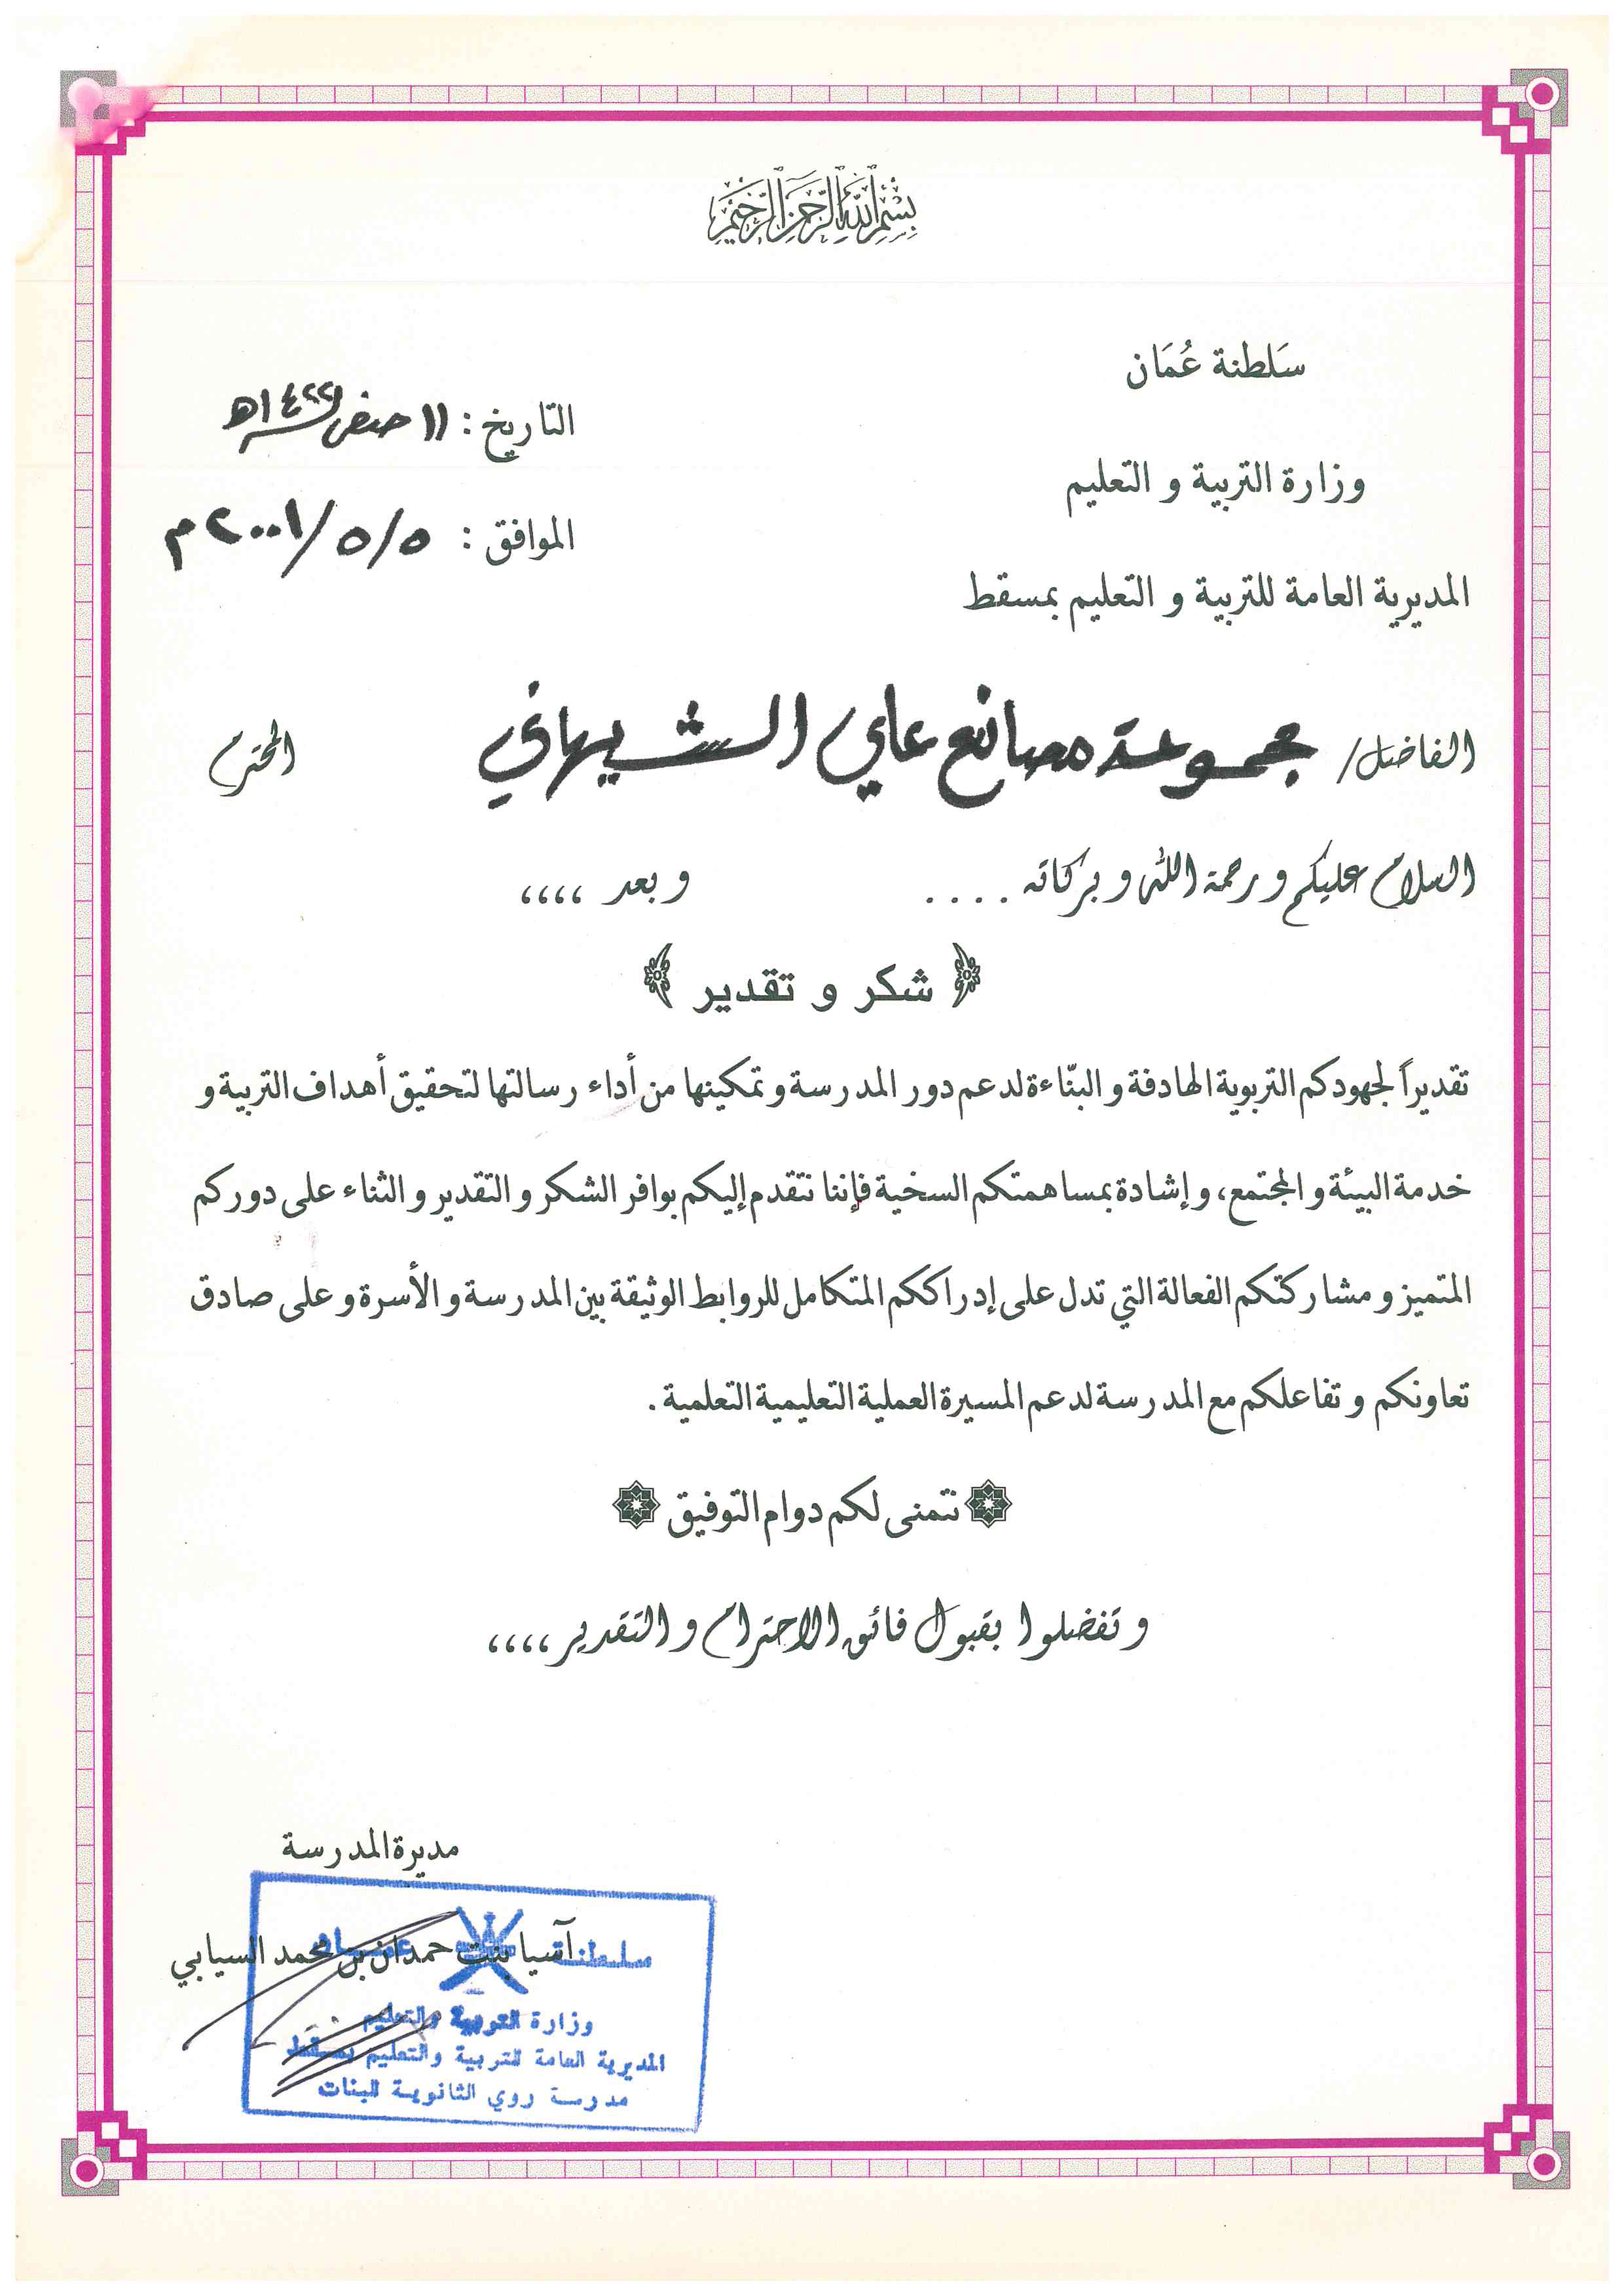 بسم الله الرحمن الرحيم
سَلطنة عُمَان
التاريخ : ١١ صفر ١٤٢٢هـ
وزارة التربية و التعليم
الموافق : ٥/٥/٢٠٠١م
المديرية العامة للتربية و التعليم بمسقط
الفاضل/ مجموعة مصانع علي الشيهاني المحترم
السلام عليكم ورحمة الله وبركاته .... وبعد ،،،،
﴿ شكر و تقدير ﴾
تقديراً لجهودكم التربوية الهادفة و البنّاءة لدعم دور المدرسة و تمكينها من أداء رسالتها لتحقيق أهداف التربية و
خدمة البيئة و المجتمع، و إشادة بمساهمتكم السخية فإننا نتقدم إليكم بوافر الشكر و التقدير و الثناء على دوركم
المتميز و مشاركتكم الفعالة التي تدل على إدراككم المتكامل للروابط الوثيقة بين المدرسة و الأسرة و على صادق
تعاونكم و تفاعلكم مع المدرسة لدعم المسيرة العملية التعليمية التعلمية .
نتمنى لكم دوام التوفيق
و تفضلوا بقبول فائق الاحترام و التقدير ،،،،
مديرة المدرسة
آسيا بنت حمدان بن محمد السيابي
سلطنة عمان
وزارة التربية والتعليم
المديرية العامة للتربية والتعليم بمسقط
مدرسة روي الثانوية للبنات